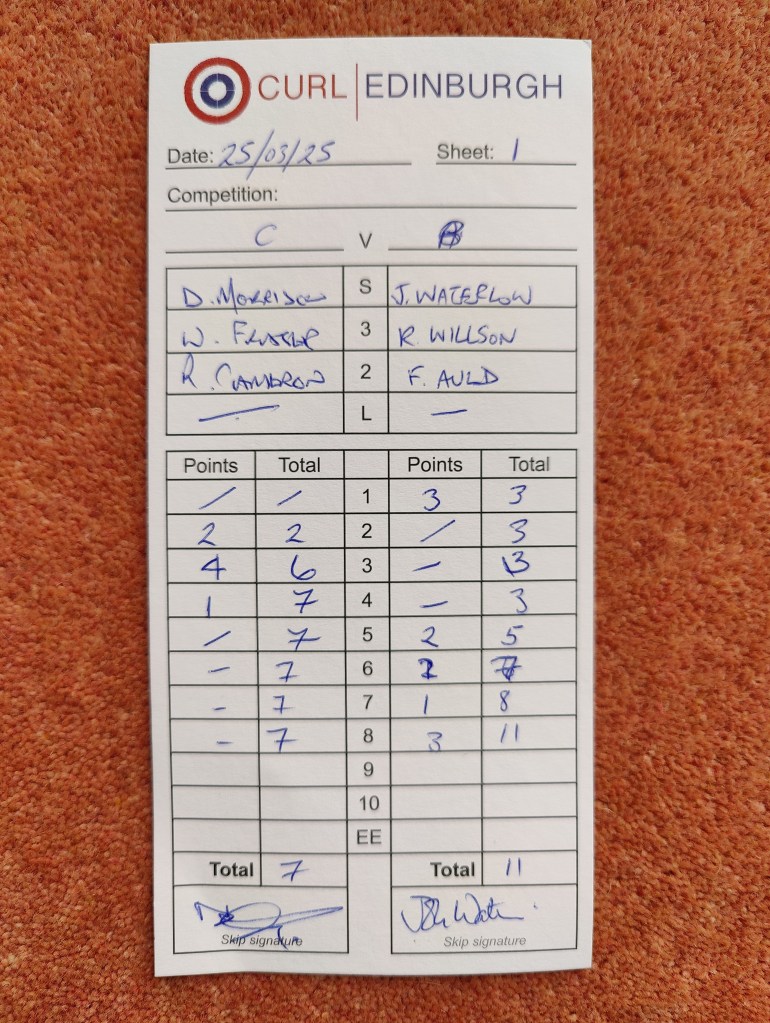 CURL | EDINBURGH
Date: 25/03/25 Sheet: 1
Competition:
C V B
D. MORRISON S J. WATERLOW
W. FRASER 3 R. WILLSON
R. CAMERON 2 F. AULD
— L —
Points Total Points Total
/ / 1 3 3
2 2 2 / 3
4 6 3 - 3
1 7 4 - 3
/ 7 5 2 5
- 7 6 2 7
- 7 7 1 8
- 7 8 3 11
9
10
EE
Total 7 Total 11
Skip signature Skip signature